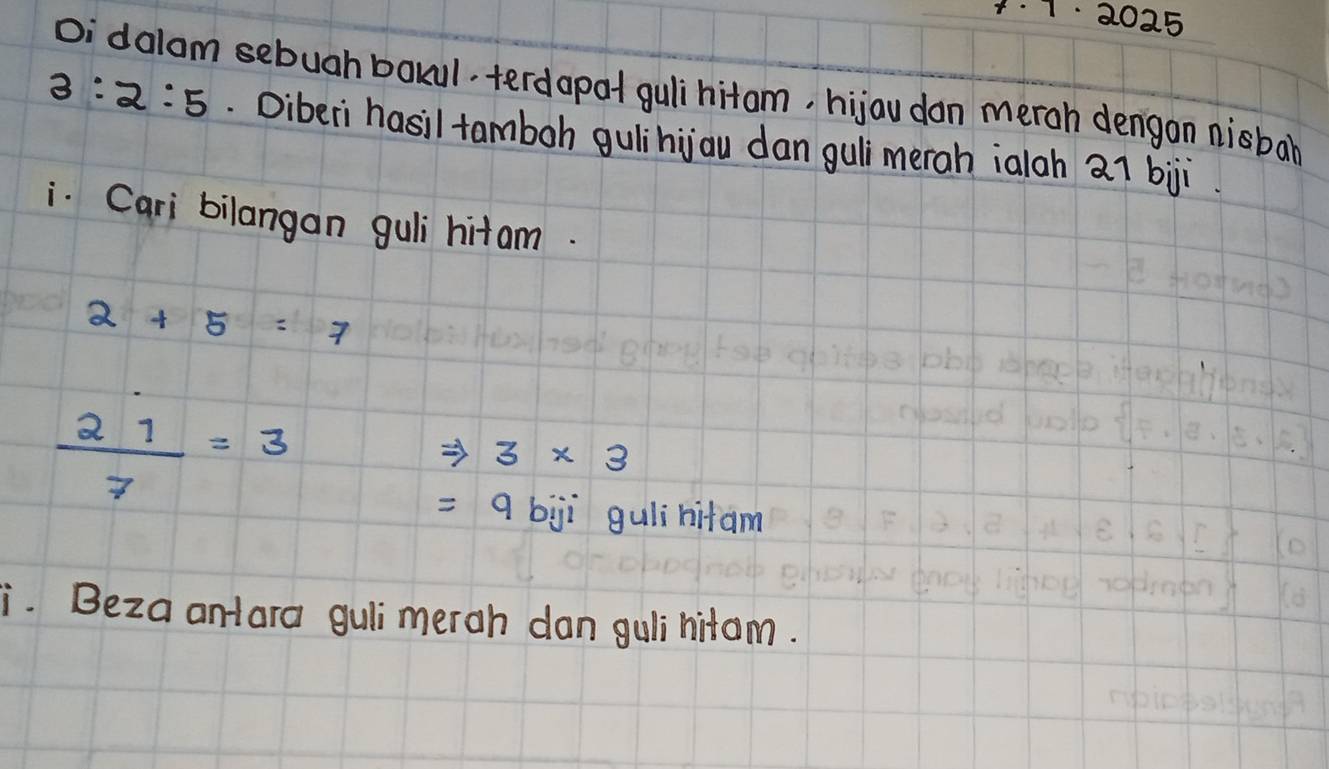 7. 1. 2025
Di dalam sebuah bakul. terdapat guli hitam, hijau dan merah dengan nisbah
3 : 2 : 5. Diberi hasil tambah guli hijau dan guli merah ialah 21 biji.
i. Cari bilangan guli hitam.
2 + 5 = 7
21/7 = 3 ⇒ 3 × 3
= 9 biji guli hitam
i. Beza antara guli merah dan guli hitam.